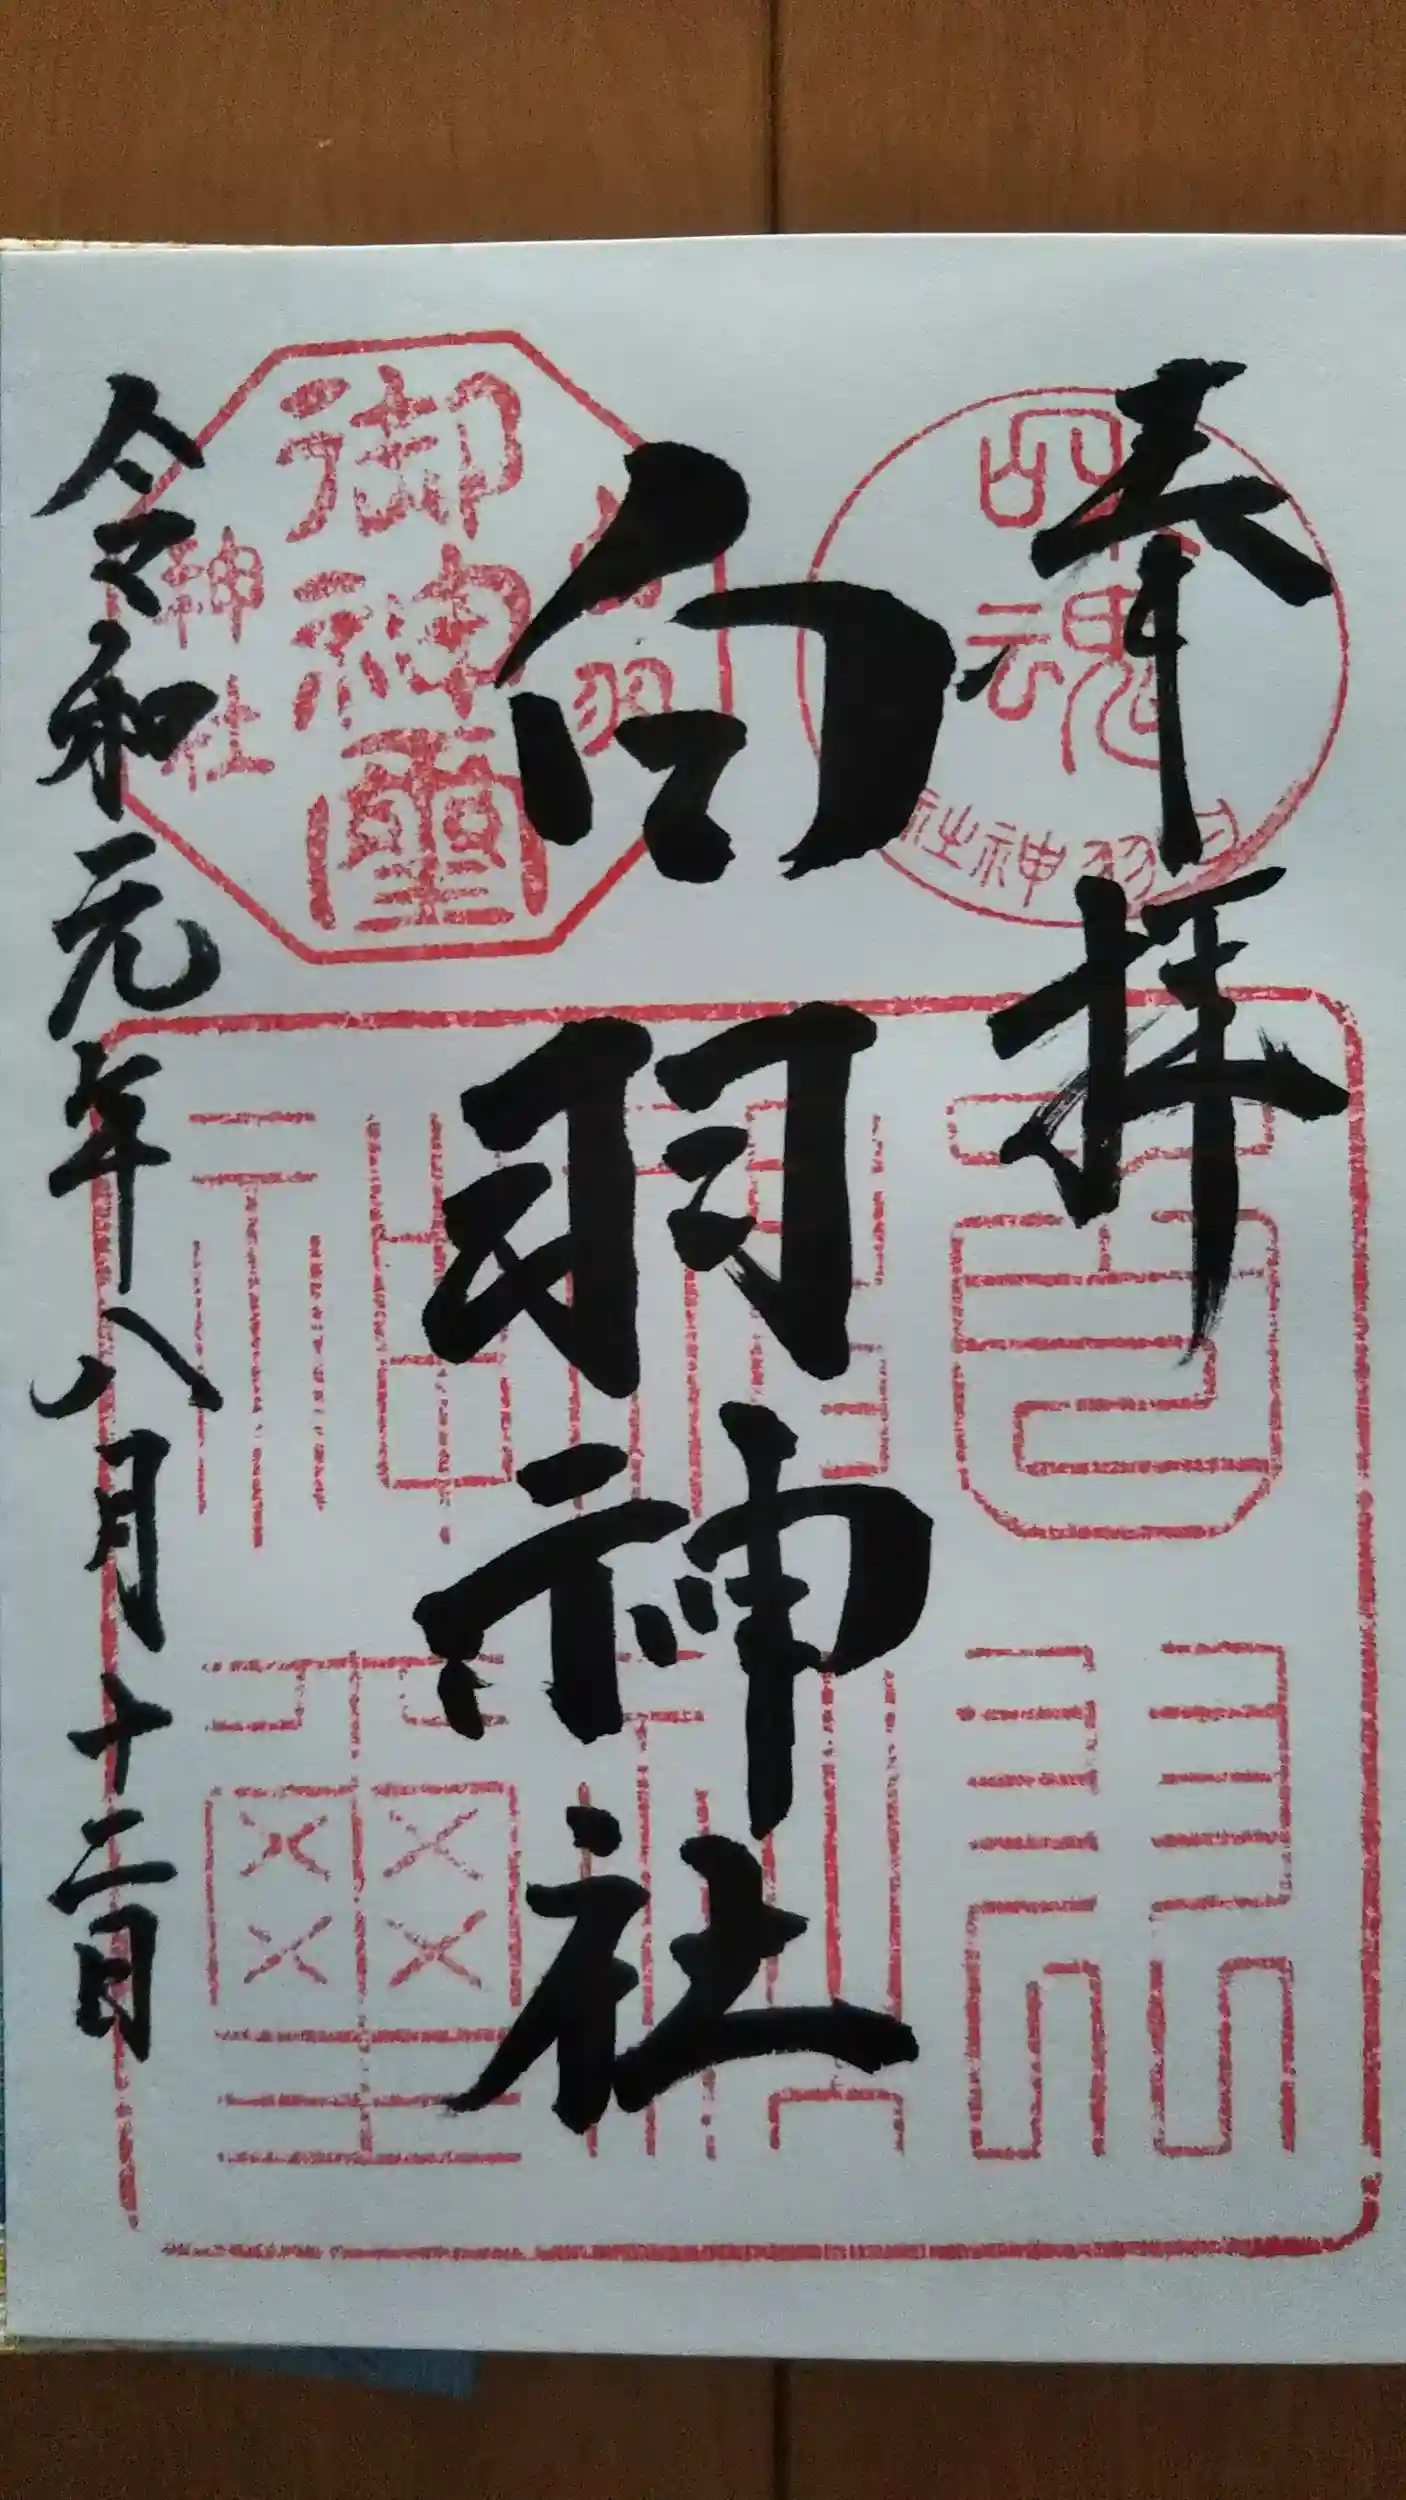 奉拝
四魂
白羽神社
白羽神社
白羽
御神璽
神社
令和元年八月十二日